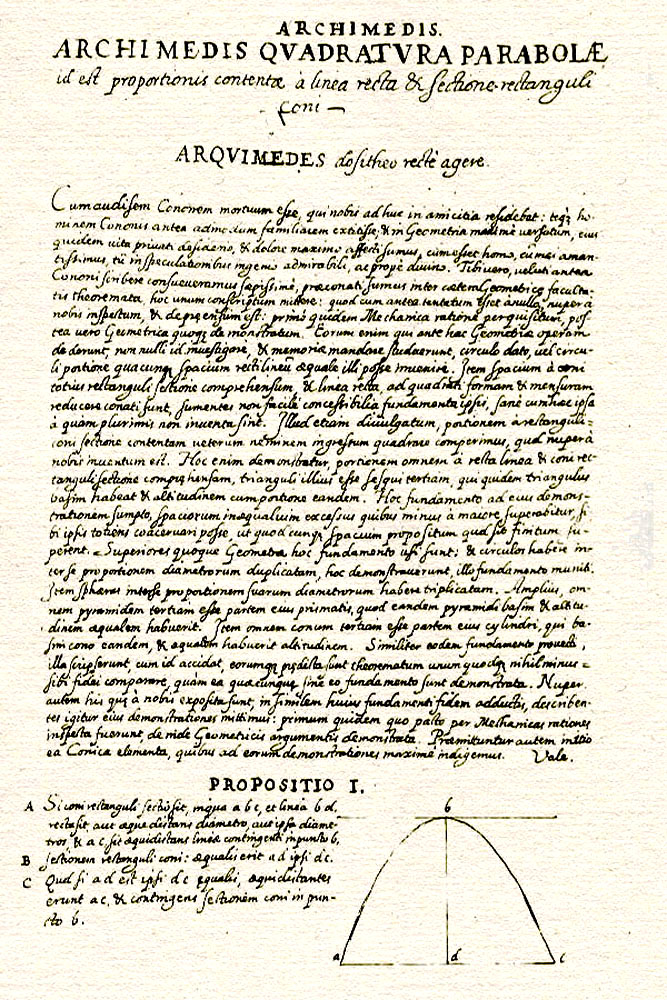 ARCHIMEDIS.
ARCHIMEDIS QVADRATVRA PARABOLÆ
id est proportionis contentæ à linea recta & sectione rectanguli
coni
ARQVIMEDES dositheo rectè agere.
Cum audissem Cononem mortuum esse, qui nobis ad huc in amicitia residebat: teqz ho-
minem Cononis antea admodum familiarem extitisse, & in Geometria maximè versatum, eius
quidem vita privati desiderio, & dolore maximo affecti sumus, cum esset homo, cū nos aman-
tissimus, tū in speculationibus ingenio admirabili, ac propè divino. Tibi vero, veluti antea
Cononi scribere consueveramus sæpissimè, præconati sumus inter cætera Geometricæ faculta-
tis theoremata, hoc unum conscriptum mittere: quod cum antea tentatum esset à nullo, nuper à
nobis inspectum, & deprensum est: primò quidem Mechanica ratione perquisitum, pos
tea vero Geometrica quoqz demonstratum. Eorum enim qui ante hac Geometriæ operam
dederunt, non nulli id investigare, & memoriæ mandare studuerunt, circulo dato, vel circu-
li portione quacunqz spacium rectilineū æquale illi posse inveniri. Item spacium à coni
totius rectanguli sectione comprehensum, & linea recta, ad quadrati formam & mensuram
reducere conati sunt, sumentes non facilè concessibilia fundamenta ipsis, sanè cum hæc ipsa
à quam plurimis non inventa sint. Illud etiam divulgatum, portionem à rectanguli-
coni sectione contentam veterum neminem ingressum quadrare comperimus, quod nuper à
nobis inventum est. Hoc enim demonstratur, portionem omnem à recta linea & coni rec-
tanguli sectione comprehensam, trianguli illius esse sesqui tertiam, qui quidem triangulus
basim habeat & altitudinem cum portione eandem. Hoc fundamento ad eius demons-
trationem sumpto, spaciorum inæqualium excessus quibus minus à maiore superabitur, si
bi ipsis totiens coacervari posse, ut quodcunqz spacium propositum quod sit finitum su-
perent. Superiores quoque Geometræ hoc fundamento usi sunt: & circulos habere in-
ter se proportionem diametrorum duplicatam, hoc demonstraverunt, illo fundamento muniti.
Item sphæras inter se proportionem suarum diametrorum habere triplicatam. Amplius, om-
nem pyramidem tertiam esse partem eius prismatis, quod eandem pyramidi basim & altitu-
dinem æqualem habuerit. Item omnem conum tertiam esse partem eius cylindri, qui ba-
sim cono eandem, & æqualem habuerit altitudinem. Similiter eodem fundamento provecti,
illa scripserunt, cum id accidat, eorumqz prædicta sunt theorematum unum quodqz nihil minus
sibi fidei comparare, quàm ea quæcunqz sine eo fundamento sunt demonstrata. Nuper
autem his quæ à nobis exposita sunt, in similem huius fundamenti fidem adductis, describen-
tes igitur eius demonstrationes mittimus: primum quidem quo pacto per Mechanicas rationes
inspecta fuerunt, deinde Geometricis argumentis demonstrata. Præmittuntur autem initio
ea Conica elementa, quibus ad eorum demonstrationes maximè indigemus. Vale.
PROPOSITIO I.
A Si coni rectanguli sectio sit, in qua a b c, et linea b d,
recta sit, aut æque distans diametro, aut ipsa diame-
tros, & a c, sit æquidistans lineæ contingenti in puncto b,
B sectionem rectanguli coni: æqualis erit a d ipsi d c.
C Quod si a d est ipsi d c æqualis, æquidistantes
erunt a c, & contingens sectionem coni in pun-
cto b.
b
a d c